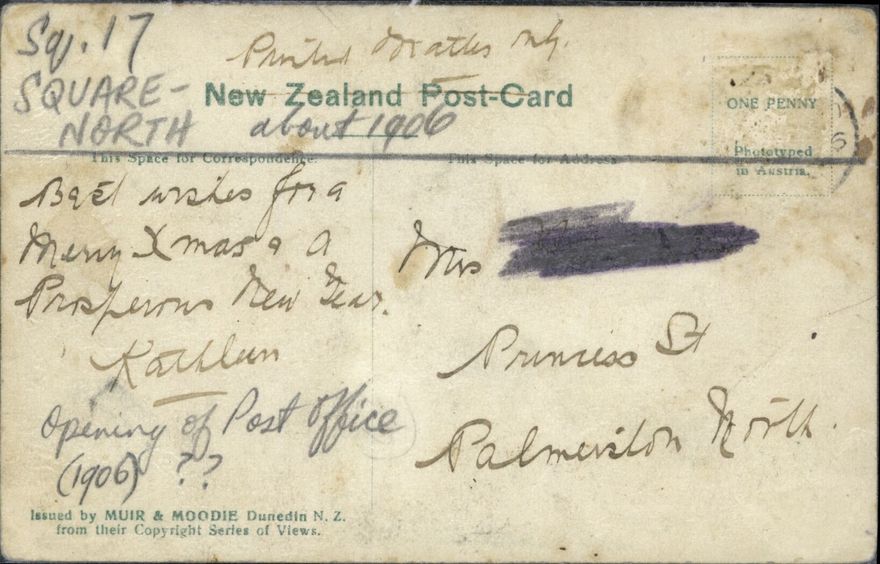 Sq. 17
SQUARE-
NORTH
Printed Matter only.
New Zealand Post-Card
about 1906
ONE PENNY
Phototyped
in Austria.
6
This Space for Correspondence.
This Space for Address
Best wishes for a
Merry Xmas & a
Prosperous New Year.
Kathleen
Mrs
Princess St
Palmerston North.
Opening of Post Office
(1906) ??
Issued by MUIR & MOODIE Dunedin N. Z.
from their Copyright Series of Views.